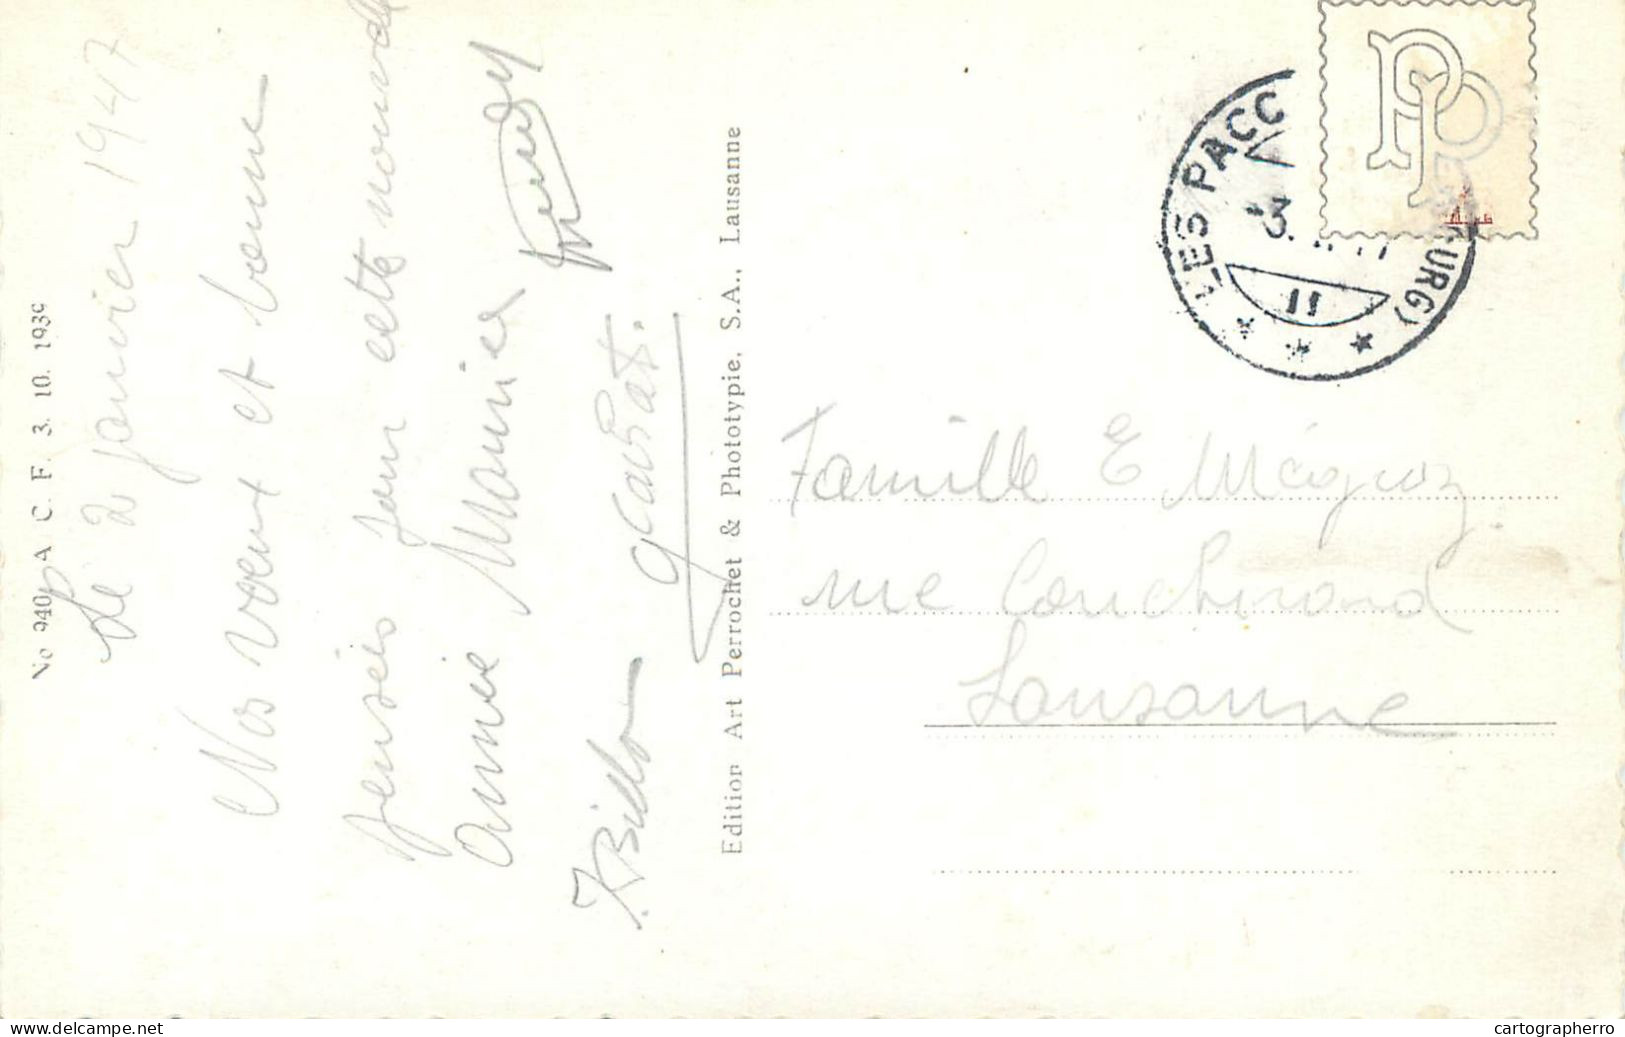 No 9405 A C F 3. 10. 1939
Le 2 janvier 1947
Nos voeux et bonne
pensées pour cette nouvelle
année Monnier
Edition Art Perrochet & Phototypie, S.A., Lausanne
LES PACC
3.
11
URG)
PP
Famille E Mégroz
rue Couchirard
Lausanne
www.delcampe.net
cartographerro